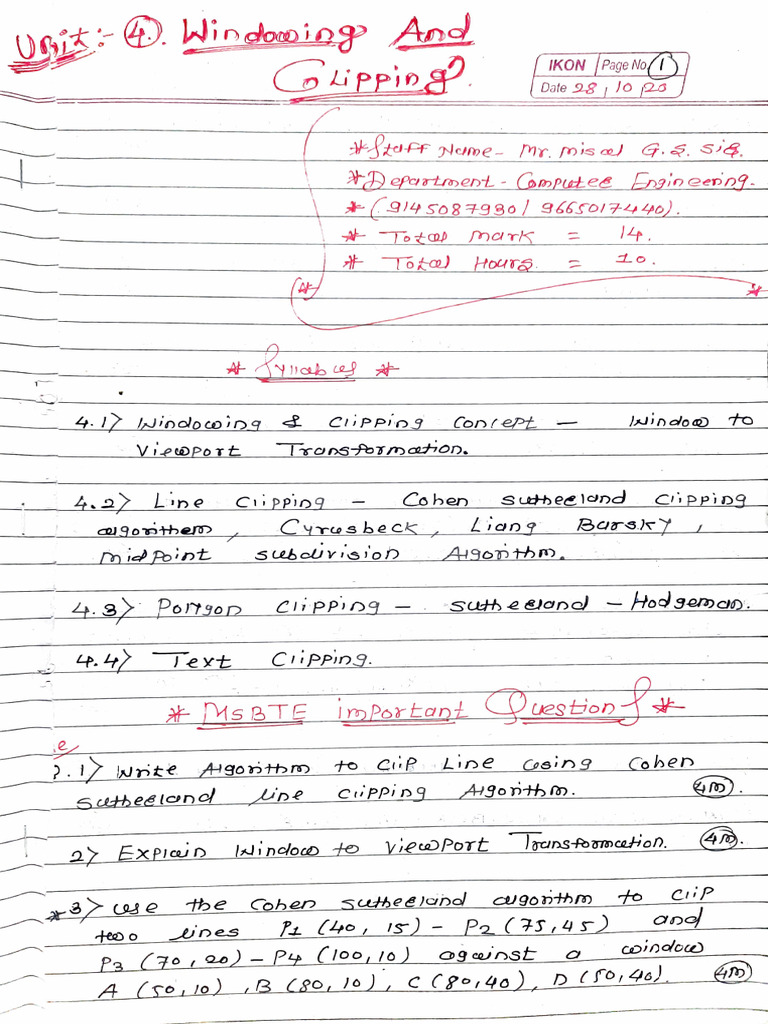 Unit:- 4. Windowing And
Clipping.
IKON Page No. 1
Date 28/10/20
* Staff Name- Mr. Misal G. S. Sir.
* Department - Computer Engineering.
* (9145087930/9665017440).
* Total Mark = 14.
* Total Hours = 10.
* Syllabus *
4.1) Windowing & Clipping Concept - Window to
Viewport Transformation.
4.2) Line Clipping - Cohen Sutherland Clipping
algorithem, Cyrusbeck, Liang Barsky,
Midpoint subdivision Algorithm.
4.3) Polygon Clipping - Sutherland - Hodgeman.
4.4) Text Clipping.
* MSBTE important Questions *
1) Write Algorithm to Clip Line using Cohen
Sutherland line clipping Algorithm. 4M.
2) Explain Window to Viewport Transformation. 4M.
* 3) Use the Cohen Sutherland algorithm to clip
two lines P1 (40, 15) - P2 (75, 45) and
P3 (70, 20) - P4 (100, 10) against a window
A (50, 10), B (80, 10), C (80, 40), D (50, 40). 4M